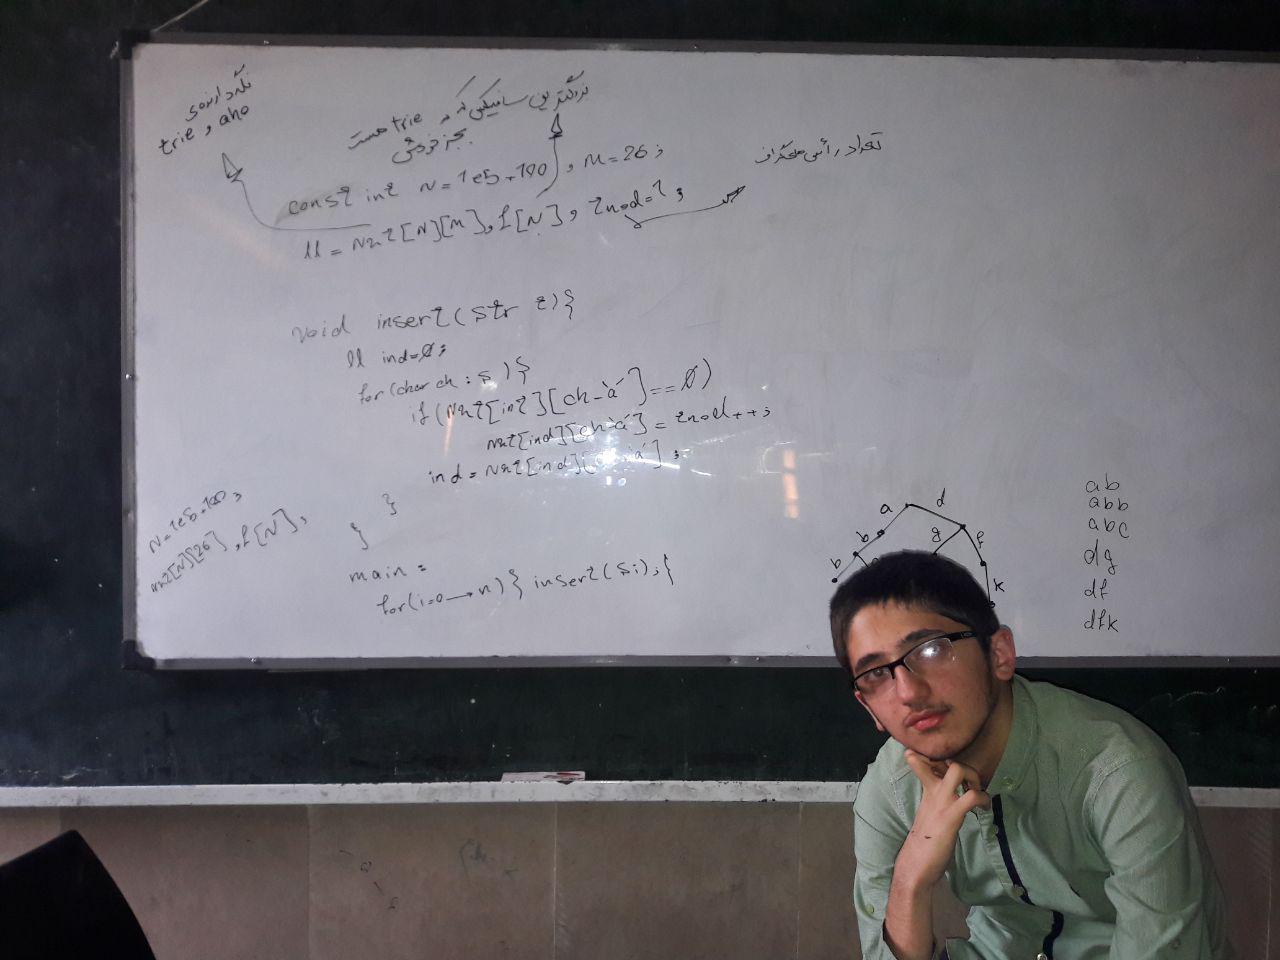 نگه دارنده‌ی
trie و aho
بزرگترین سافیکسی که
در trie هست
بجز خودش
تعداد رأس های گراف
const int N = 1e5+100, M = 26;
ll = nxt[N][M], f[N], tnod=1;
void insert(str t)}
ll ind=0;
for(char ch : s)}
if(nxt[int][ch-'a']==0)
nxt[ind][ch-'a'] = tnod++;
ind = nxt[ind][ch-'a'];
}
}
N=1e5+100;
nxt[N][26], f[N],
main =
for(i=0→n)} insert(si);{
a d
b g f
b k
ab
abb
abc
dg
df
dfk